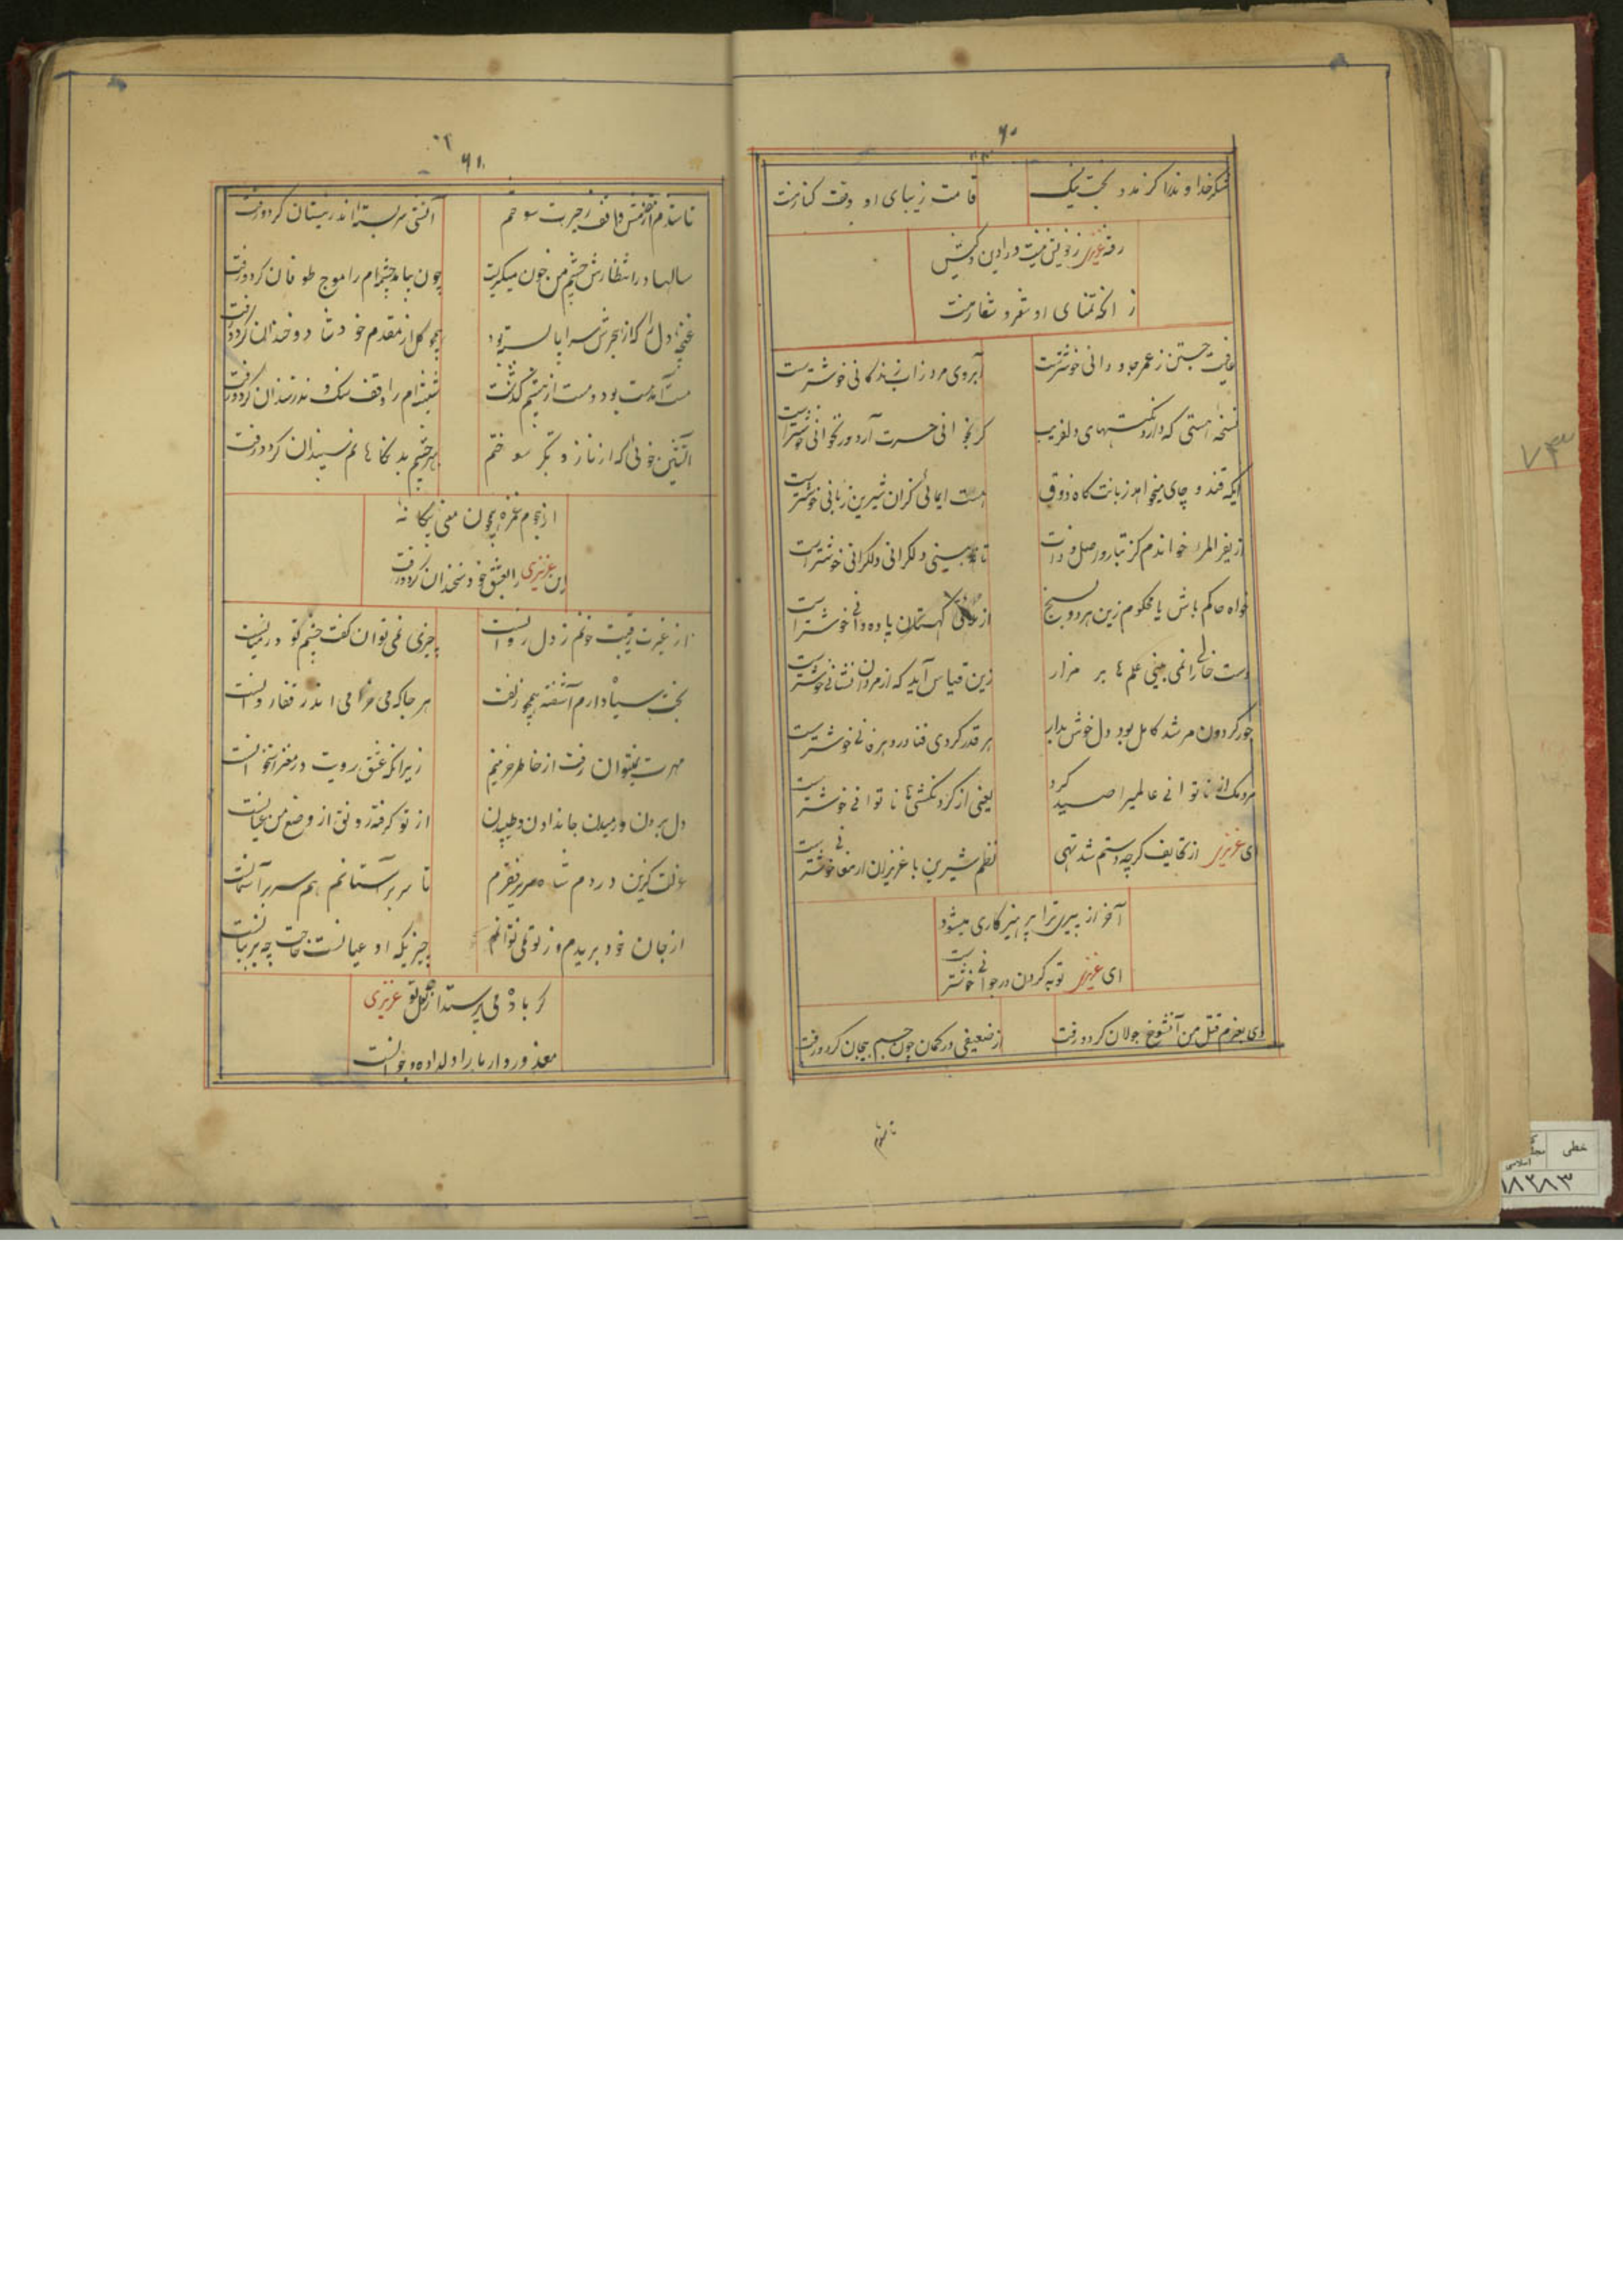 ۶۰
شکر خدا وندا کر مدد بخت نیک
قامت زیبای او وقت کنار منت
رفته عزیزی ز خویش نیست در این
ز آنکه تمنای او شعر و شعار منت
عافیت جستن ز عمر جاودانی خوشترست
آبروی مرد ز اب زندکانی خوشترست
نسخه هستی که دارد نکتهای دلفریب
کر بخوانی حسرت آرد ور نخوانی خوشتر است
ایکه قند و چای میخواهد زبانت کاه ذوق
هست ایمائی کزان شیرین زبانی خوشتر است
از یفر المرء خواندم کز تبار و اصل و ذات
تا نه بینی دلکرانی دلکرانی خوشتر است
خواه حاکم باش یا محکوم زین هر دو بسنج
از کهستان یا ده دانی خوشتر است
دست خالی را نمی بینی علم ها بر مزار
زین قیاس آید که از مردان نشانی خوشتر است
جور کردون مرشد کامل بود دل خوش بدار
هر قدر کردی فنا در دهر فانی خوشترست
مردمک از ناتوانی عالمیرا صید کرد
یعنی از کردنکشی ها ناتوانی خوشتر است
ای عزیزی از تحایف کرچه دستم شد تهی
نظم شیرین با عزیزان ارمغانی خوشتر است
آخر از پیری ترا پرهیزکاری میشود
ای عزیزی توبه کردن در جوانی خوشتر است
دی بعزم قتل من آنشوخ جولان کرد و رفت
از ضعیفی در کمان چون جسم بیجان کرد و رفت
تا شدم
۶۱
تا شدم از مقدمش واقف ز حیرت سوختم
آتشی سربسته اندر نیستان کرد و رفت
سالها در انتظارش چشم من خون میکریست
چون بیامد چشم ام را موج طوفان کرد و رفت
غنچه دل را که از هجرش سراپا بسته بود
همچو کل از مقدم خود شاد و خندان کرد و رفت
مست آمد مست بود و مست از پیشم کذشت
شیشه ام را وقف سنک ندرستان کرد و رفت
آتشین خوئی که از ناز و تکبر سوختم
بهر چشم بد نکاهانم سپندان کرد و رفت
از هجوم غمزه همچون معنی بیکانه
این عزیزی را بعشق خود سخندان کرد و رفت
از غیرت رقیبت خونم ز دل روانست
چیزی نمی توان کفت چشم تو در میانست
بخت سیاه دارم آشفته همچو زلفت
هر جا که می خرامی اندر قفا روانست
مهرت نمیتوان رفت از خاطر حزینم
زیرا که عشق رویت در مغز استخوانست
دل بردن و رمیدن جاندادن و طپیدن
از تو کرفته رونق از وضع من عیانست
عزلت کزین دردم شاه سریر فقرم
تا سر بر آستانم هم سر بر آسمانست
از جان خود بریدم وز تو نمی توانم
چیزیکه او عیانست حاجت چه بر بیانست
کر باده می پرستد از لعل تو عزیزی
معذور دار ما را دلداده و جوانست
۷۳
خطی
اسلامی
۱۸۲۸۳